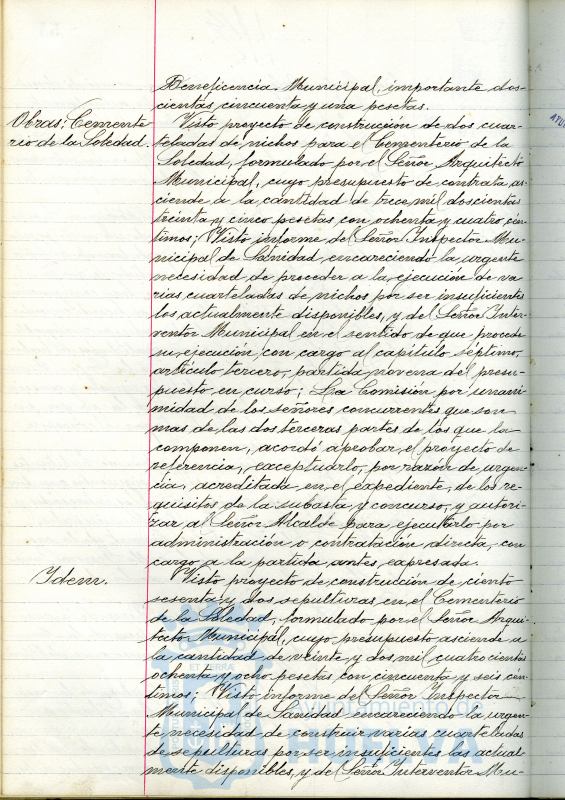 Beneficencia Municipal, importante dos-
cientas cincuenta y una pesetas.
Obras: Cemente
rio de la Soledad.
Visto proyecto de construcción de dos cuar-
teladas de nichos para el Cementerio de la
Soledad, formulado por el Señor Arquitecto
Municipal, cuyo presupuesto de contrata as-
ciende a la cantidad de trece mil doscientas
treinta y cinco pesetas con ochenta y cuatro cén-
timos; Visto informe del Señor Inspector Mu-
nicipal de Sanidad, encareciendo la urgente
necesidad de proceder a la ejecución de va-
rias cuarteladas de nichos por ser insuficientes
los actualmente disponibles, y del Señor Inter-
ventor Municipal en el sentido de que procede
su ejecución con cargo al capítulo séptimo,
artículo tercero, partida novena del presu-
puesto en curso; La Comisión por unani-
midad de los señores concurrentes que son
mas de las dos terceras partes de los que la
componen, acordó aprobar el proyecto de
referencia, exceptuarlo, por razón de urgen-
cia, acreditada en el expediente, de los re-
quisitos de la subasta y concurso, y autori-
zar al Señor Alcalde para ejecutarlo por
administración o contratación directa, con
cargo a la partida antes expresada.
Idem.
Visto proyecto de construcción de ciento
sesenta y dos sepulturas en el Cementerio
de la Soledad, formulado por el Señor Arqui-
tecto Municipal, cuyo presupuesto asciende a
la cantidad de veinte y dos mil cuatrocientas
ochenta y ocho pesetas con cincuenta y seis cén-
timos; Visto informe del Señor Inspector
Municipal de Sanidad encareciendo la urgen-
te necesidad de construir varias cuarteladas
de sepulturas por ser insuficientes las actual-
mente disponibles, y del Señor Interventor Mu-
Ayuntamiento de